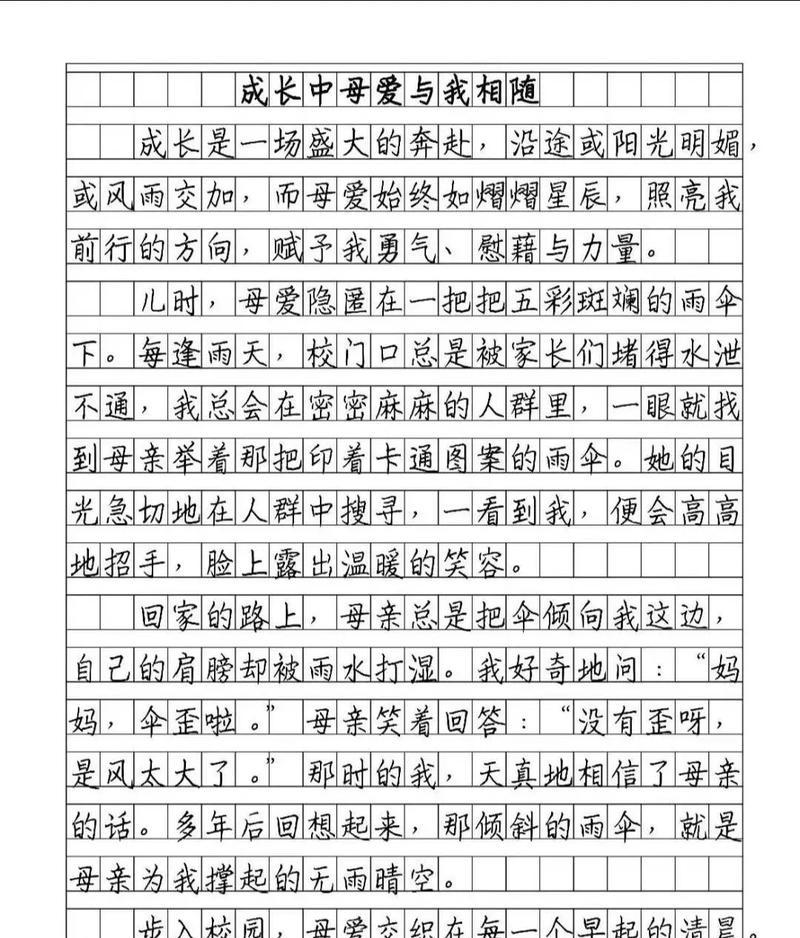 成长中母爱与我相随
成长是一场盛大的奔赴，沿途或阳光明媚，
或风雨交加，而母爱始终如熠熠星辰，照亮我
前行的方向，赋予我勇气、慰藉与力量。
儿时，母爱隐匿在一把把五彩斑斓的雨伞
下。每逢雨天，校门口总是被家长们堵得水泄
不通，我总会在密密麻麻的人群里，一眼就找
到母亲举着那把印着卡通图案的雨伞。她的目
光急切地在人群中搜寻，一看到我，便会高高
地招手，脸上露出温暖的笑容。
回家的路上，母亲总是把伞倾向我这边，
自己的肩膀却被雨水打湿。我好奇地问：“妈
妈，伞歪啦。”母亲笑着回答：“没有歪呀，
是风太大了。”那时的我，天真地相信了母亲
的话。多年后回想起来，那倾斜的雨伞，就是
母亲为我撑起的无雨晴空。
步入校园，母爱交织在每一个早起的清晨。